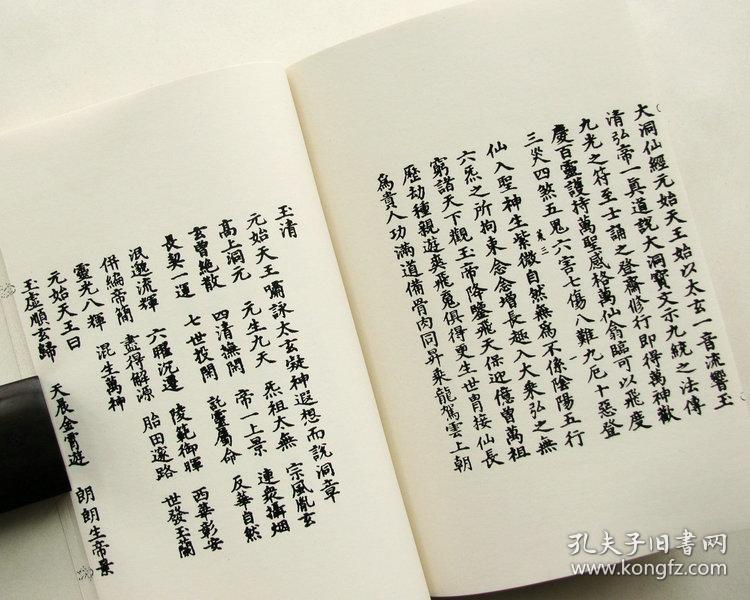 大洞仙經元始天王始以太玄一音流響玉
清弘帝一真道說大洞寶文示九統之法傳
九光之符至士誦之登齋修行即得萬神歡
慶百靈護持萬聖感格萬仙翕臨可以飛度
三災四煞五鬼六害七傷八難九厄十惡登
仙入聖神生紫微自然無為不係陰陽五行
六炁之所拘束念念增長趣入大乘弘之無
窮諸天下觀玉帝降鑒飛天保迎億曾萬祖
歷劫種親遊爽飛魂俱得更生世胄接仙長
為貴人功滿道備骨肉同昇乘龍駕雲上朝
玉清
元始天王嘯詠太玄凝神遐想而說洞章
元始天王 元生九天 炁祖太無 宗風胤玄
高上洞元 四清撫閑 帝一上景 連眾攝烟
玄曾絕散 七世投閑 託靈屬命 反華自然
長契一運 六曜沉遷 陵範御暉 西華彰安
泯邈流輝 盡得解源 胎田遂路 世發玉蘭
併編帝簡 混生萬神
靈光八輝
元始天王曰
玉虛順玄歸 天辰金霄遊 朗朗生帝景
孔夫子旧书网
www.kongfz.com